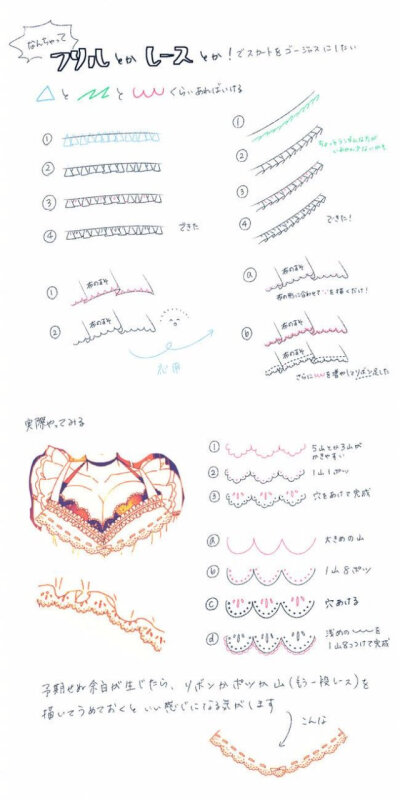 なんちゃって
フリルとか レースとか！でスカートをゴージャスにしたい
△と と くらいあればいける
①
②
③
④ できた
①
ちょっとランダムな方が
②
③
④ できた！
① 布のすそ
② 布のすそ
応用
ⓐ 布のすそ
布の形に合わせて を描くだけ！
ⓑ 布のすそ
布のすそ
さらに を増やしてリボン足した
実際やってみる
① 5山とか3山が
かきやすい
② 1山1ポツ
③ 穴をあけて完成
ⓐ 大きめの山
ⓑ 1山8ポツ
ⓒ 穴あける
ⓓ 浅めの を
1山8つつけて完成
予期せぬ余白が生じたら、リボンかポツか山(もう一枚レース)を
描いてうめておくといい感じになる気がします
こんな